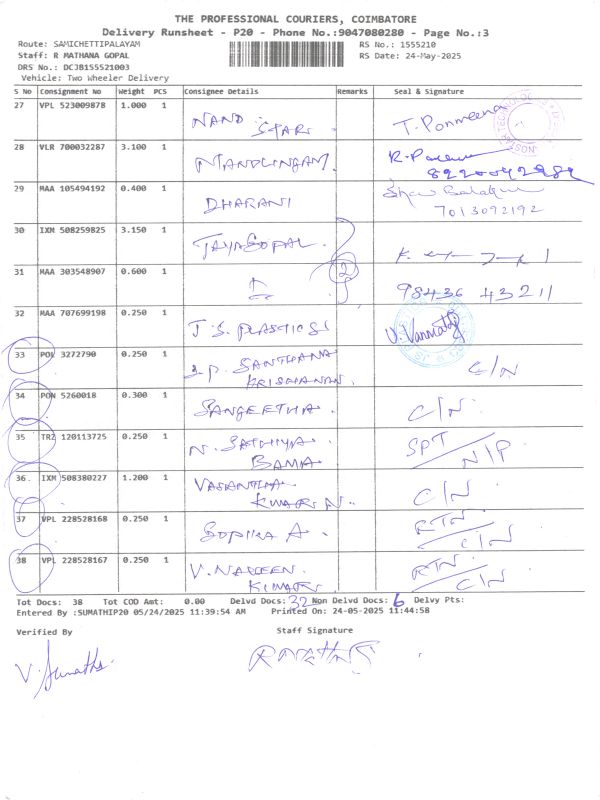 THE PROFESSIONAL COURIERS, COIMBATORE
Delivery Runsheet - P20 - Phone No.:9047080280 - Page No.:3
Route: SAMICHETTIPALAYAM RS No.: 1555210
Staff: R MATHANA GOPAL RS Date: 24-May-2025
DRS No.: DC3B155521003
Vehicle: Two Wheeler Delivery
S No Consignment No Weight PCS Consignee Details Remarks Seal & Signature
27 VPL 523009878 1.000 1 NAND STAR T. Ponmeena
28 VLR 700032287 3.100 1 NANDLINGAM
29 MAA 105494192 0.400 1 DHARANI
7013092192
30 IXM 508259825 3.150 1 JAYAGOPAL.
31 MAA 303548907 0.600 1 2 98436 43211
32 MAA 707699198 0.250 1 J.S. PLASTICS V. Vanmathi
33 POL 3272790 0.250 1 S.P. SANTHANA KRISHANAN. C/N
34 PON 5260018 0.300 1 SANGEETHA. C/N
35 TRZ 120113725 0.250 1 N. SATHIYA BAMA SPT N/P
36. IXM 508380227 1.200 1 VASANTHA KUMAR N. C/N
37 VPL 228528168 0.250 1 GOPIKA A. RTN C/N
38 VPL 228528167 0.250 1 V. NAVEEN KUMAR RTN C/N
Tot Docs: 38 Tot COD Amt: 0.00 Delvd Docs: 32 Non Delvd Docs: 6 Delvy Pts:
Entered By :SUMATHIP20 05/24/2025 11:39:54 AM Printed On: 24-05-2025 11:44:58
Verified By Staff Signature
V. Sumathi